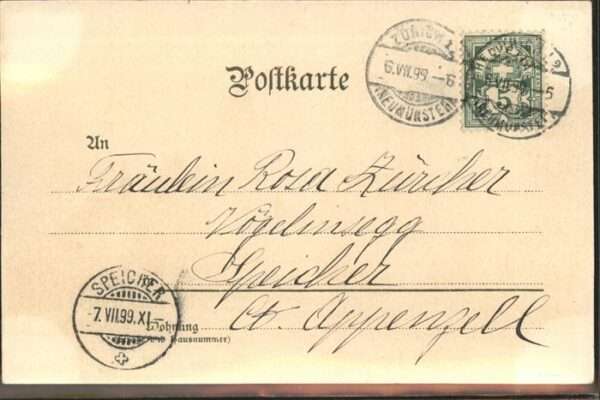 ZÜRICH
6.VII.99.-6
(NEUMÜNSTER)
5
Postkarte
An
Fräulein Rosa Zürcher
Vögelinsegg
Speicher
Ct. Appenzell
SPEICHER
-7.VII.99.XI-
Wohnung
Hausnummer)